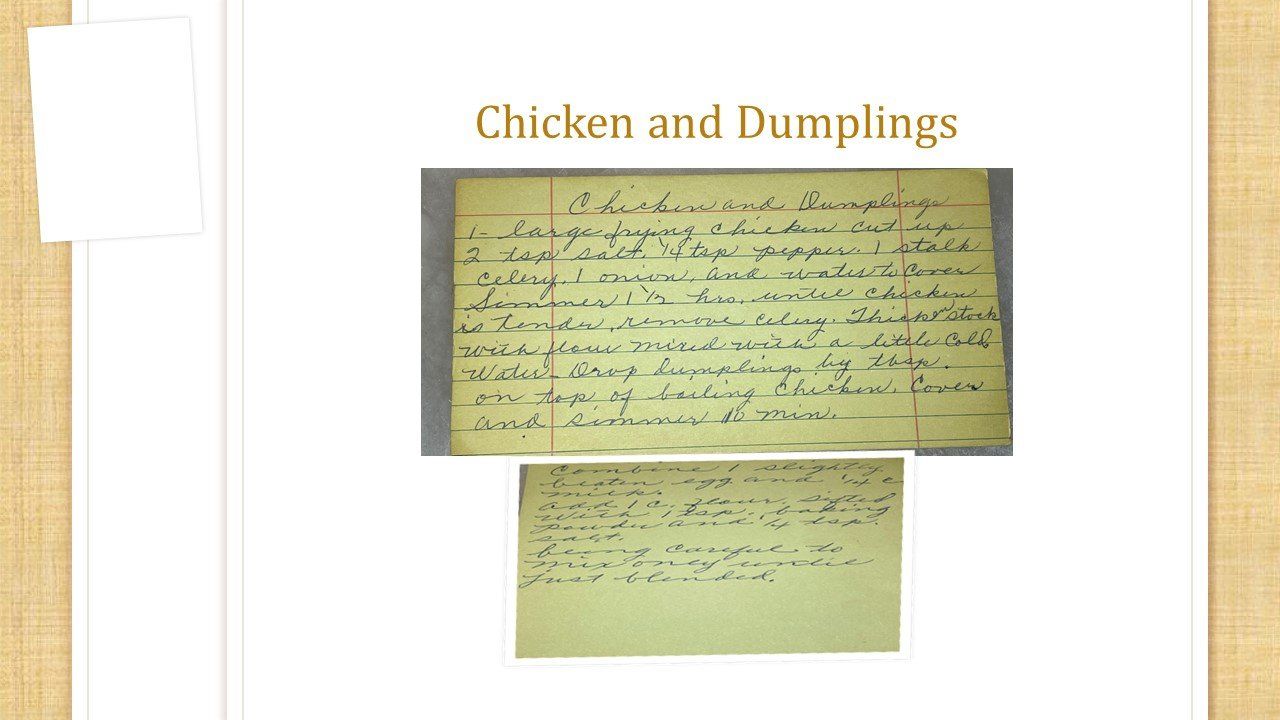 Chicken and Dumplings
Chicken and Dumplings
1- large frying chicken cut up
2 tsp salt, 1/4 tsp pepper. 1 stalk
celery, 1 onion, and water to cover
Simmer 1 1/2 hrs. until chicken
is tender, remove celery. Thicken stock
with flour mixed with a little cold
Water - Drop dumplings by tbsp.
on top of boiling chicken. Cover
and simmer 10 min.
Combine 1 slightly
beaten egg and 1/4 c
milk.
add 1 c. flour, sifted
with 1 tsp. baking
powder and 1/4 tsp.
salt.
being careful to
mix only until
just blended.